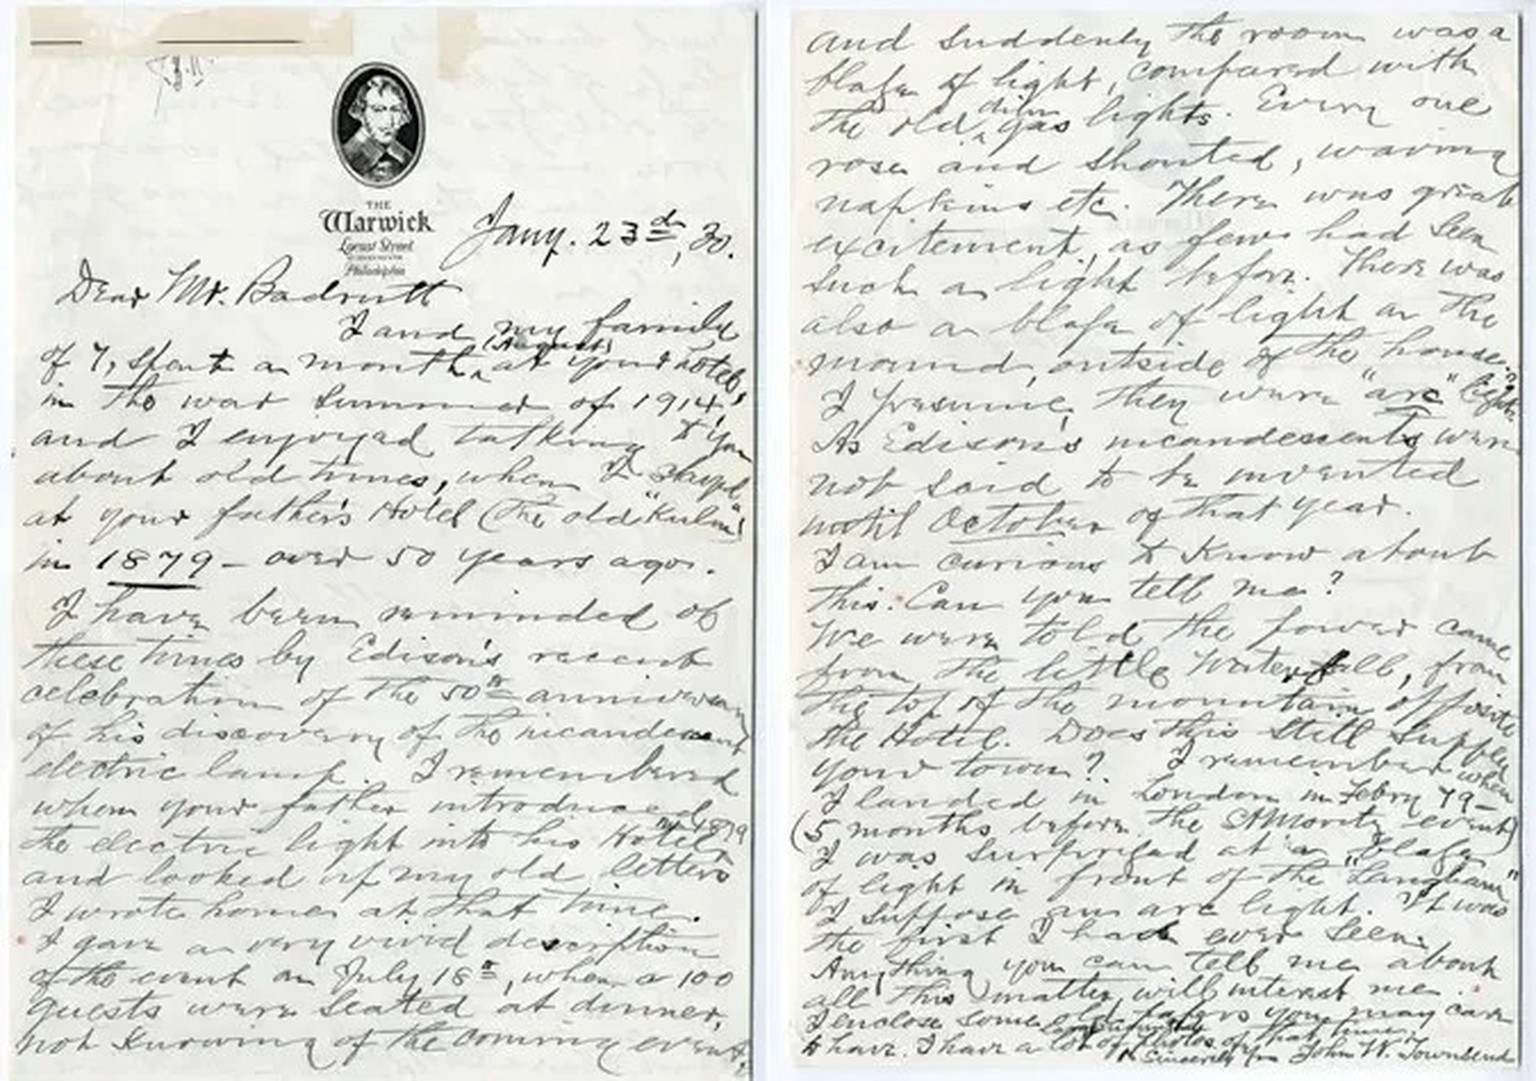 THE
Warwick
Locust Street
Philadelphia
Jany. 23rd, 30.
Dear Mr. Badrutt
I and my family
of 7, spent a month (August) at your Hotel,
in the war summer of 1914,
and I enjoyed talking to you
about old times, when I stayed
at your father's Hotel (The old "Kulm")
in 1879 - over 50 years ago.
I have been reminded of
these times by Edison's recent
celebration of the 50th anniversary
of his discovery of the incandescent
electric lamp. I remembered
when your father introduced
the electric light into his Hotel in 1879
and looked up my old letters
I wrote home at that time.
I gave a very vivid description
of the event on July 18th, when a 100
guests were seated at dinner,
not knowing of the coming event,
and suddenly the room was a
blaze of light, compared with
the old dim gas lights. Every one
rose and shouted, waving
napkins etc. There was great
excitement, as few had seen
such a light before. There was
also a blaze of light on the
mound, outside of the house.
I presume, they were "arc" lights?
As Edison's incandescents were
not said to be invented
until October of that year.
I am curious to know about
this. Can you tell me?
We were told the power came
from the little Waterfall, from
the top of the mountain opposite
the Hotel. Does this still supply
your town? I remember when
I landed in London in Febry 79 -
(5 months before the St Moritz event)
I was surprised at a "blaze
of light in front of the "Langham"
I suppose an arc light. It was
the first I had ever seen.
Anything you can tell me about
all this matter, will interest me.
I enclose some old papers you may care
to have. I have a lot of photos of that time.
Sincerely yrs John W. Townsend